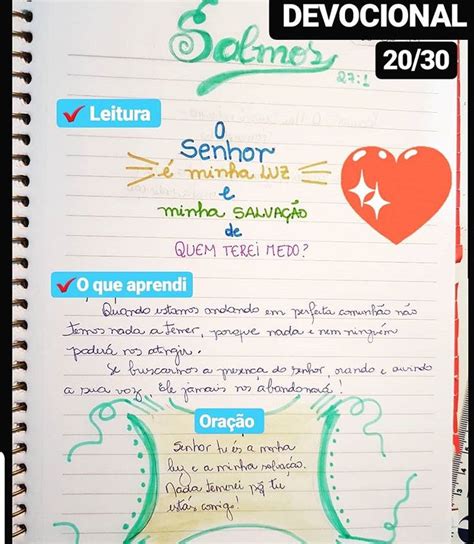 DEVOCIONAL
20/30
Salmos
27:1
Leitura
O
Senhor
é minha LUZ
e
minha SALVAÇÃO
de
QUEM TEREI MEDO?
O que aprendi
Quando estamos andando em perfeita comunhão não
temos nada a temer, porque nada e nem ninguém
poderá nos atingir.
Se buscarmos a presença do senhor, orando e ouvindo
a sua voz, Ele jamais nos abandonará!
Oração
Senhor tu és a minha
luz e a minha salvação.
Nada temerei pq tu
estás comigo!